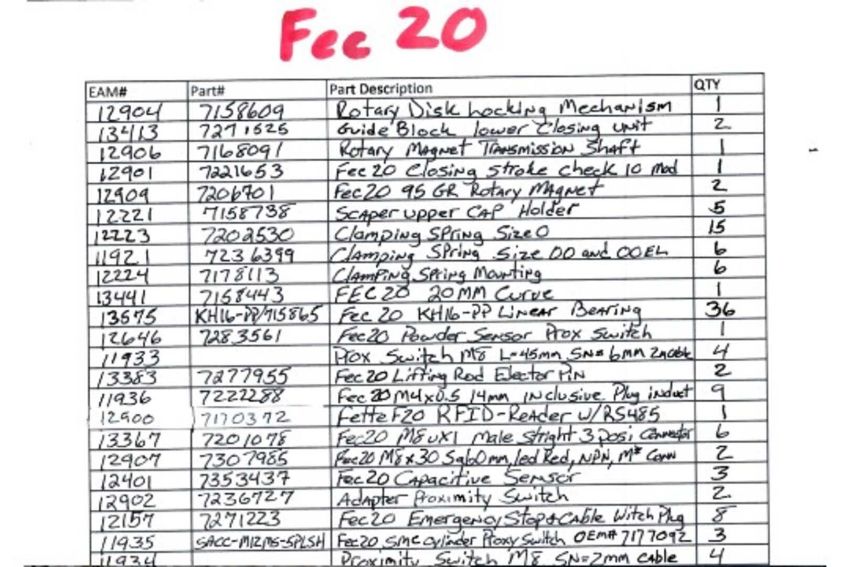 Fec 20
EAM# Part# Part Description QTY
12904 7158609 Rotary Disk Locking Mechanism 1
13413 7271525 Guide Block lower Closing unit 2
12906 7168091 Rotary Magnet Transmission Shaft 1
12901 7221653 Fec 20 Closing stroke check 10 mod 1
12909 7206701 Fec 20 95 GR Rotary Magnet 2
12221 7158738 Scaper upper CAP Holder 5
12223 7202530 Clamping Spring Size 0 15
11921 7236399 Clamping Spring Size 00 and 00EL 6
12224 7178113 Clamping Spring Mounting 6
13441 7158443 FEC 20 20MM Curve 1
13575 KH16-PP/715865 Fec 20 KH16-PP Linear Bearing 36
12646 7283561 Fec20 Powder Sensor Prox Switch 1
11933 Prox Switch M8 L=45mm SN=6mm 2mCable 4
13383 7277955 Fec 20 Lifting Rod Elector Pin 2
11936 7222288 Fec 20 M4x0.5 14mm inclusive Plug induct 9
12900 7170372 Fette F20 RFID-Reader W/RS485 1
13367 7201078 Fec20 M8ux1 Male Stright 3 posi Connector 6
12907 7307985 Fec20 M8x30 Sq60mm, led Red, NPN, M* Conn 2
12401 7353437 Fec 20 Capacitive Sensor 3
12902 7236727 Adapter Proximity Switch 2
12157 7271223 Fec 20 Emergency Stop+Cable Witch Plug 8
11935 SACC-M12MS-5PLSH Fec 20 SMC cylinder Proxy Switch OEM# 7177092 3
11934 Proximity Switch M8 SN=2mm Cable 4